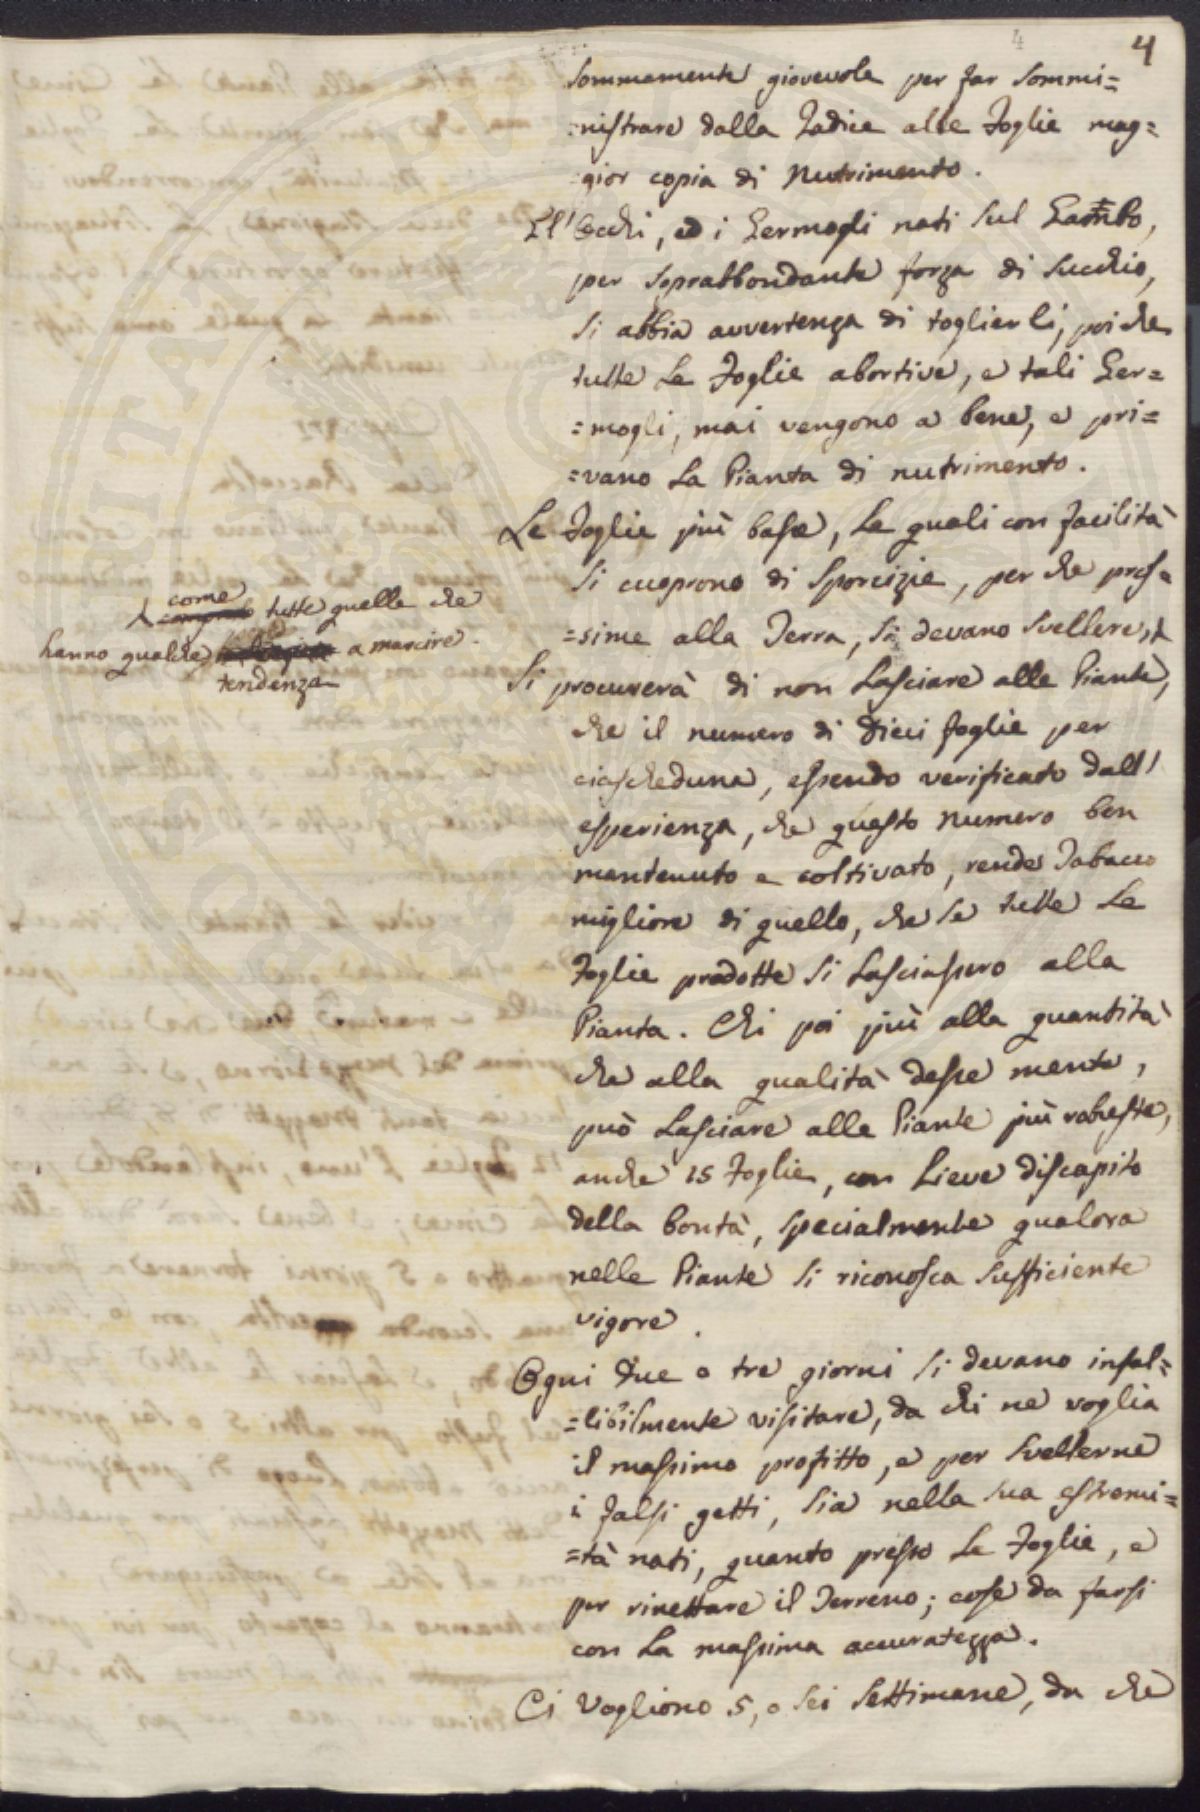 4
4
sommamente giovevole per far sommi=
=nistrare dalla Radice alle Foglie mag=
=gior copia di Nutrimento.
Gl'Occhi, ed i Germogli nati sul Gambo,
per soprabbondante forza di succhio,
si abbia avvertenza di toglierli, poi che
tutte Le Foglie abortive, e tali Ger=
=mogli, mai vengono a bene, e pri=
=vano La Pianta di nutrimento.
Le Foglie più basse, Le quali con facilità
si cuoprono di Sporcizie, per che pros=
=sime alla Terra, si devano svellere,
come
tutte quelle che
hanno qualche a marcire.
tendenza
Si procurerà di non Lasciare alle Piante,
che il numero di Dieci foglie per
ciascheduna, essendo verificato dall'
esperienza, che questo numero ben
mantenuto e coltivato, rende Tabacco
migliore di quello, che se tutte Le
Foglie prodotte si Lasciassero alla
Pianta. Chi poi più alla quantità
che alla qualità desse mente,
può Lasciare alle Piante più robuste,
anche 15 Foglie, con Lieve discapito
della bontà, specialmente qualora
nelle Piante si riconosca sufficiente
vigore.
Ogni due o tre giorni si devano infal=
=libilmente visitare, da chi ne voglia
il massimo profitto, e per svellerne
i falsi getti, sia nella sua estremi=
=tà nati, quanto presso Le Foglie, e
per rinettare il Terreno; cose da farsi
con La massima accuratezza.
Ci Vogliono 5, o sei settimane, da che